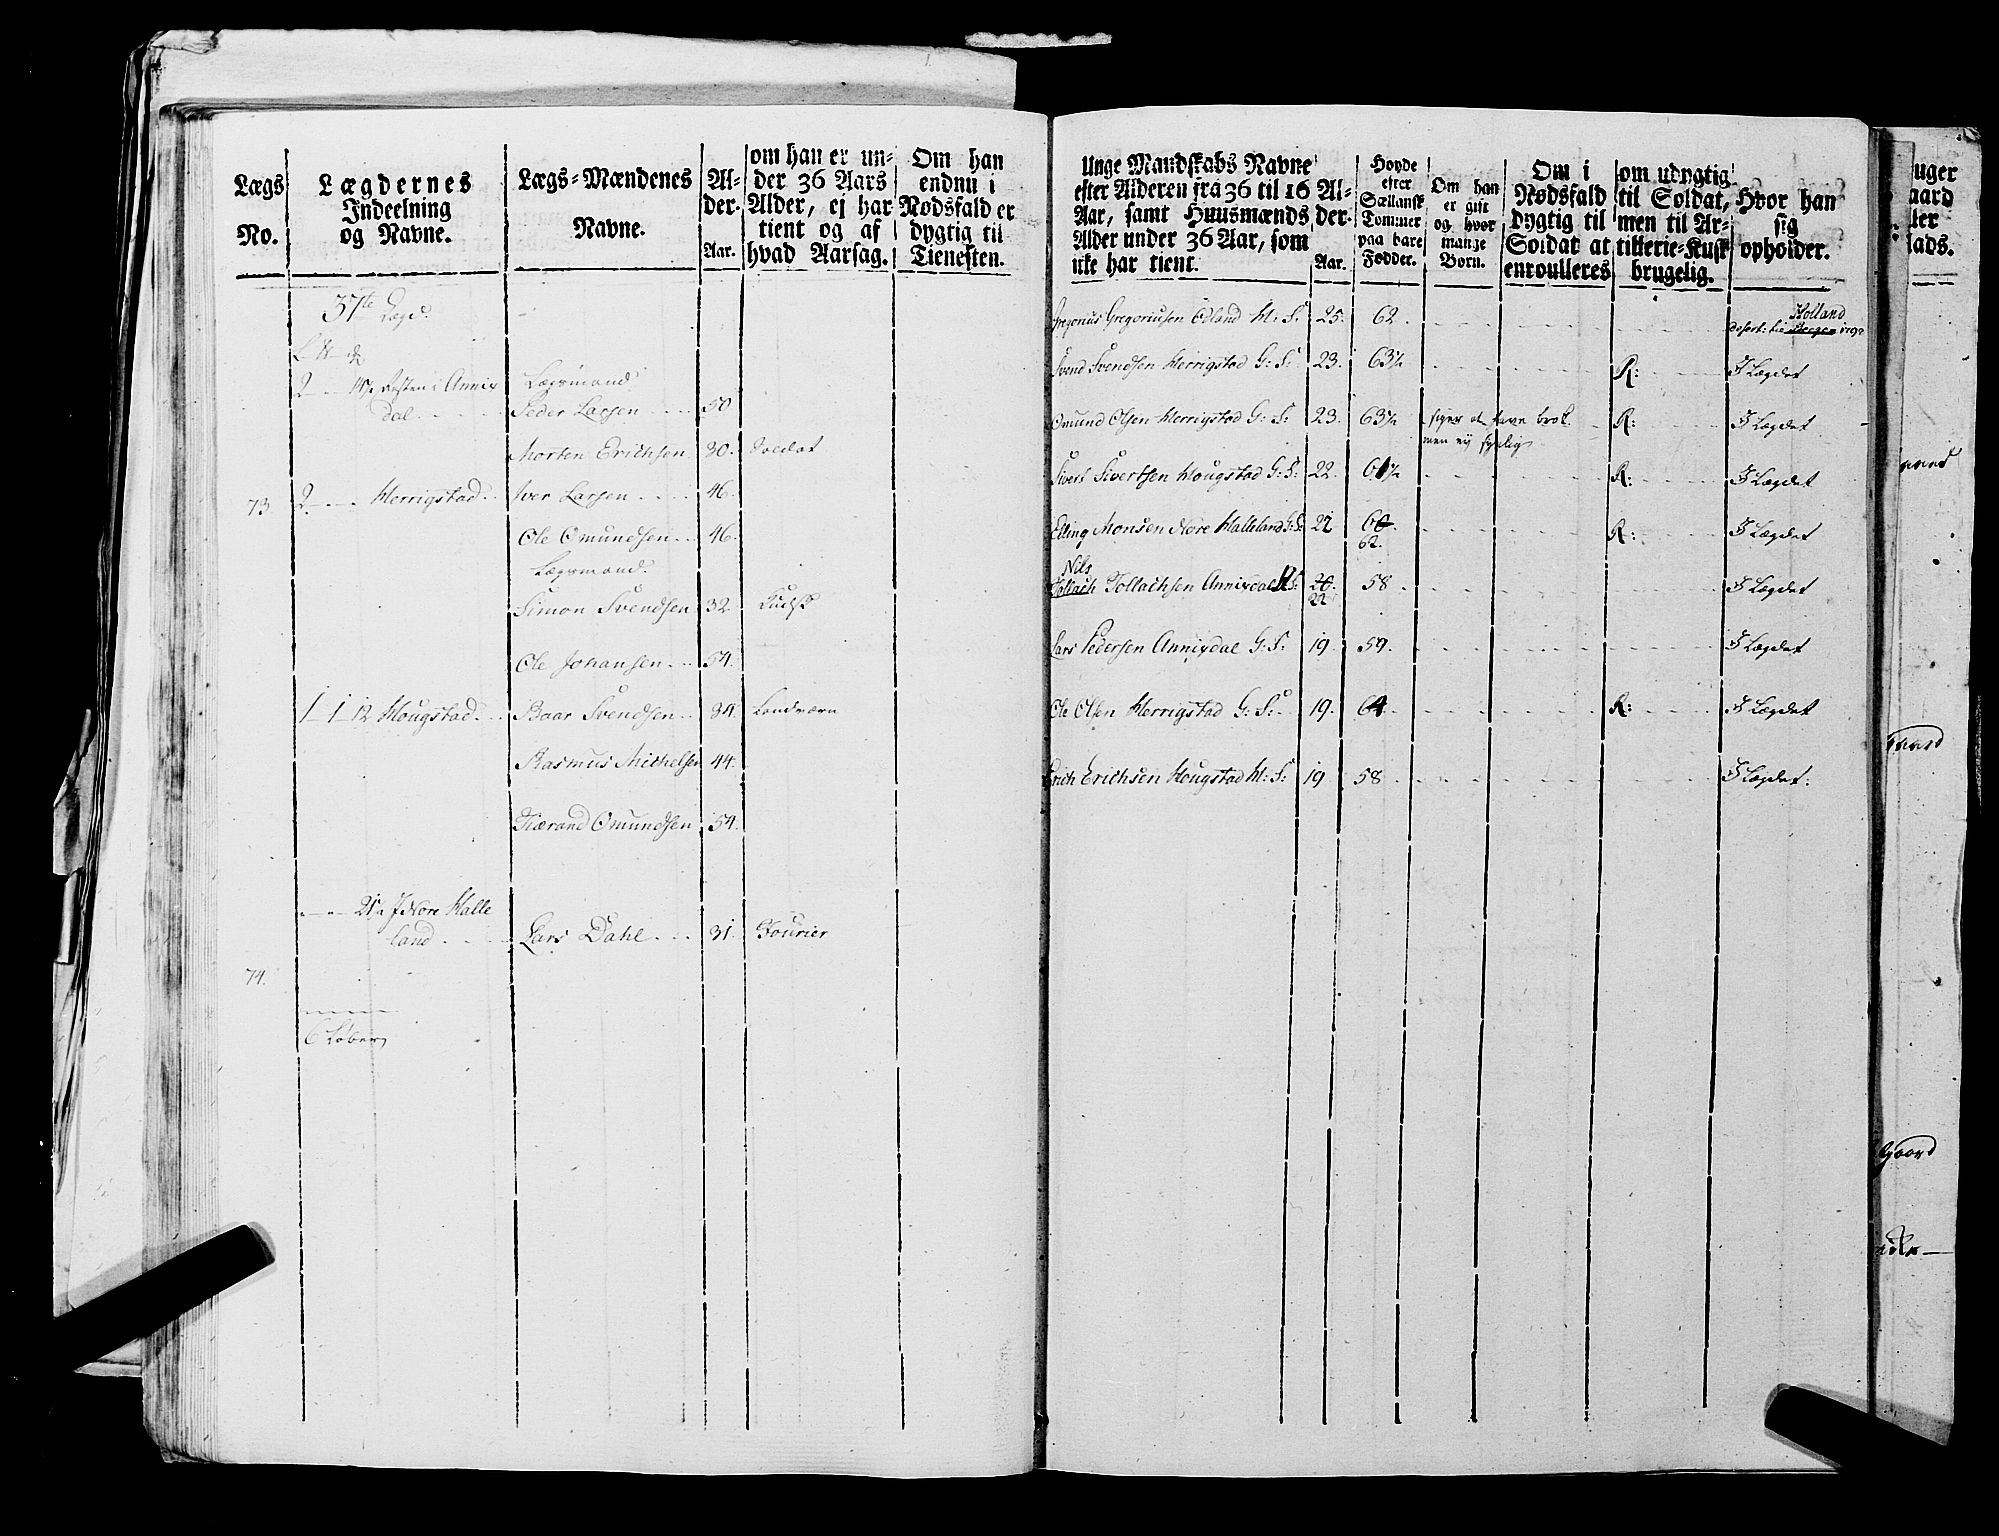 Lægs No.
Lægdernes Indeelning og Navne.
Lægs-Mændenes Navne.
Al-der. Aar.
om han er un-
der 36 Aars
Alder, ej har
tient og af
hvad Aarsag.
Om han
endnu i
Nodsfald er
dygtig til
Tienesten.
37te Lægd.
2 Resten i Annix
dal
Lægsmand
Peder Larsen 50
Morten Erichsen 30. Soldat
73 2 Herrigstad Iver Larsen 46.
Ole Omundsen 46.
Lægsmand.
Simon Svendsen 32. Kudsk
Ole Johansen 54.
1 1 12 Hougstad Baar Svendsen 34. Landværn
Rasmus Michelsen 44.
Tiærand Omundsen 54.
I Nore Halle
land Lars Dahl 31. Fourier
74.
6 Løber
Unge Mandskabs Navne
efter Alderen fra 36 til 16
Aar, samt Huusmænds
Alder under 36 Aar, som
ikke har tient.
Al-
der.
Aar.
Hoyde
efter
Sællansk
Tommer
paa bare
Fodder.
Om han
er gift
og hvor
mange
Born.
Om i
Nodsfald
dygtig til
Soldat at
enroulleres
om udygtig
til Soldat,
men til Ar-
tillerie-Kusk
brugelig.
Hvor han
sig
opholder.
Holland
Gregorius Gregoriusen Odland H: S: 25. 62. desert: til Bergen 1792
Svend Svendsen Herrigstad G: S: 23. 63½ R: I Lægdet
Omund Olsen Herrigstad G: S: 23. 63½ siger at have brok R: I Lægdet
men ej synlig
Sivert Sivertsen Hougstad G: S: 22. 61½ R: I Lægdet
Elling Monsen Nore Halleland G: S: 22 60. R: I Lægdet
62.
Nils
Tollach Tollachsen Annixdal H: S: 20. 58 I Lægdet
22
Lars Pedersen Annixdal G: S: 19. 59. I Lægdet
Ole Olsen Herrigstad G: S: 19. 64 R: I Lægdet
Erich Erichsen Hougstad H: S: 19 58 I Lægdet.
uger
aard
ler
lads.
Gaard